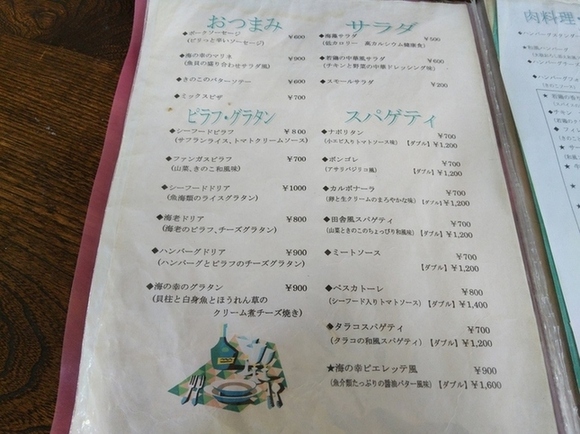 おつまみ
◆ポークソーセージ ¥600
(ピリッと辛いソーセージ)
◆海の幸のマリネ ¥900
(魚貝の盛り合わせサラダ風)
◆きのこのバターソテー ¥600
◆ミックスピザ ¥700
サラダ
◆海藻サラダ ¥500
(低カロリー 高カルシウム健康食)
◆若鶏の中華風サラダ ¥600
(チキンと野菜の中華ドレッシング味)
◆スモールサラダ ¥200
ピラフ・グラタン
◆シーフードピラフ ¥800
(サフランライス、トマトクリームソース)
◆ファンガスピラフ ¥700
(山菜、きのこ和風味)
◆シーフードドリア ¥1000
(魚海類のライスグラタン)
◆海老ドリア ¥800
(海老のピラフ、チーズグラタン)
◆ハンバーグドリア ¥900
(ハンバーグとピラフのチーズグラタン)
◆海の幸のグラタン ¥900
(貝柱と白身魚とほうれん草の
クリーム煮チーズ焼き)
スパゲティ
◆ナポリタン ¥700
(小エビ入りトマトソース味) 【ダブル】¥1,200
◆ボンゴレ ¥700
(アサリバジリコ風) 【ダブル】¥1,200
◆カルボナーラ ¥700
(卵と生クリームのまろやかな味) 【ダブル】¥1,200
◆田舎風スパゲティ ¥700
(山菜ときのこのちょっぴり和風味) 【ダブル】¥1,200
◆ミートソース ¥700
【ダブル】¥1,200
◆ペスカトーレ ¥800
(シーフード入りトマトソース) 【ダブル】¥1,400
◆タラコスパゲティ ¥700
(タラコの和風スパゲティ) 【ダブル】¥1,200
★海の幸ピエレッテ風 ¥900
(魚介類たっぷりの醤油バター風味) 【ダブル】¥1,600
肉料理